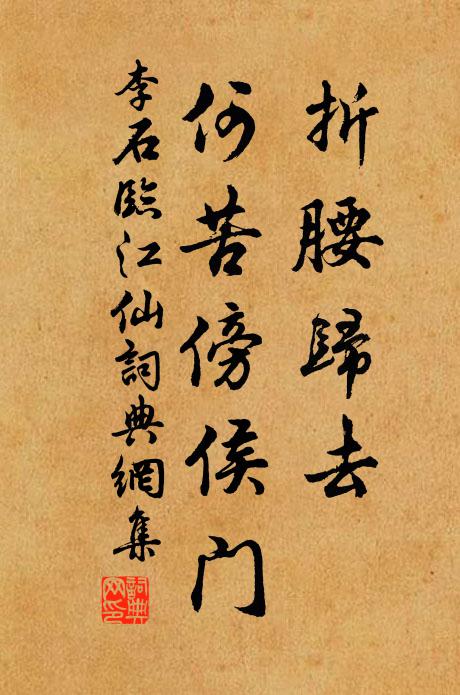 折腰歸去
何苦傍侯門
李石臨江仙詞典網集
詞典网印